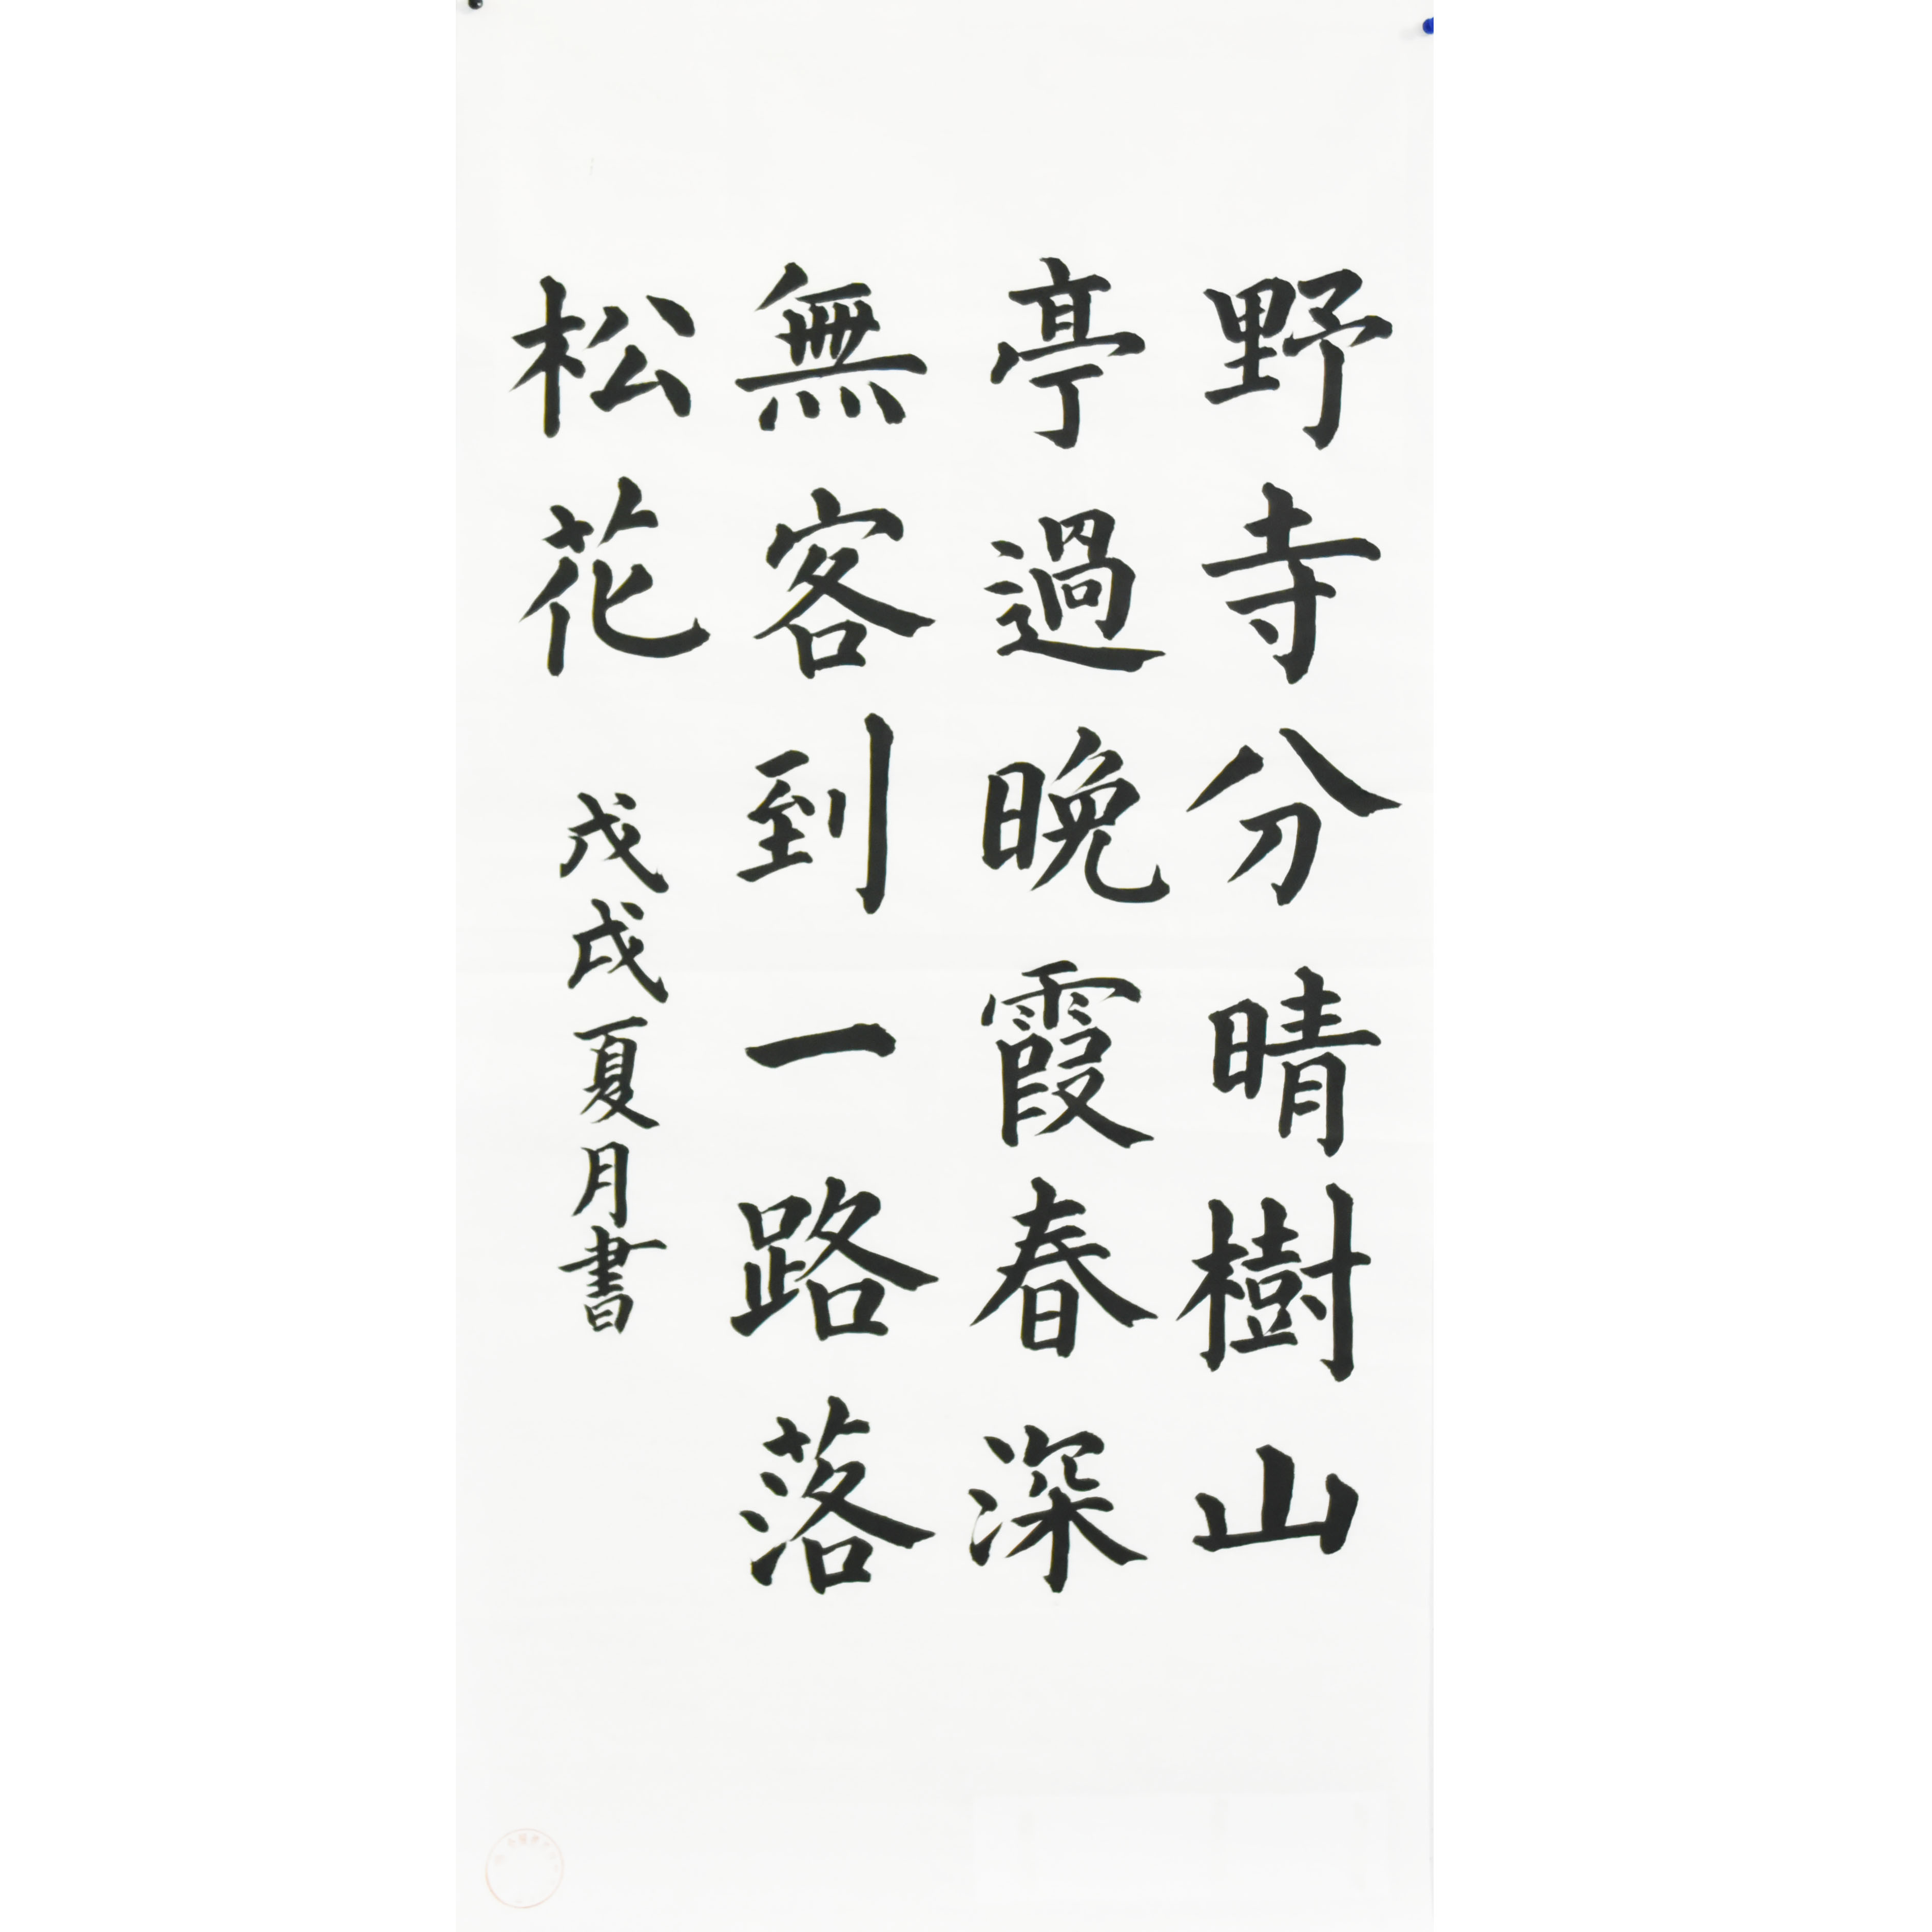 野寺分晴樹山
亭過晚霞春深
無客到一路落
松花
戊戌夏月書